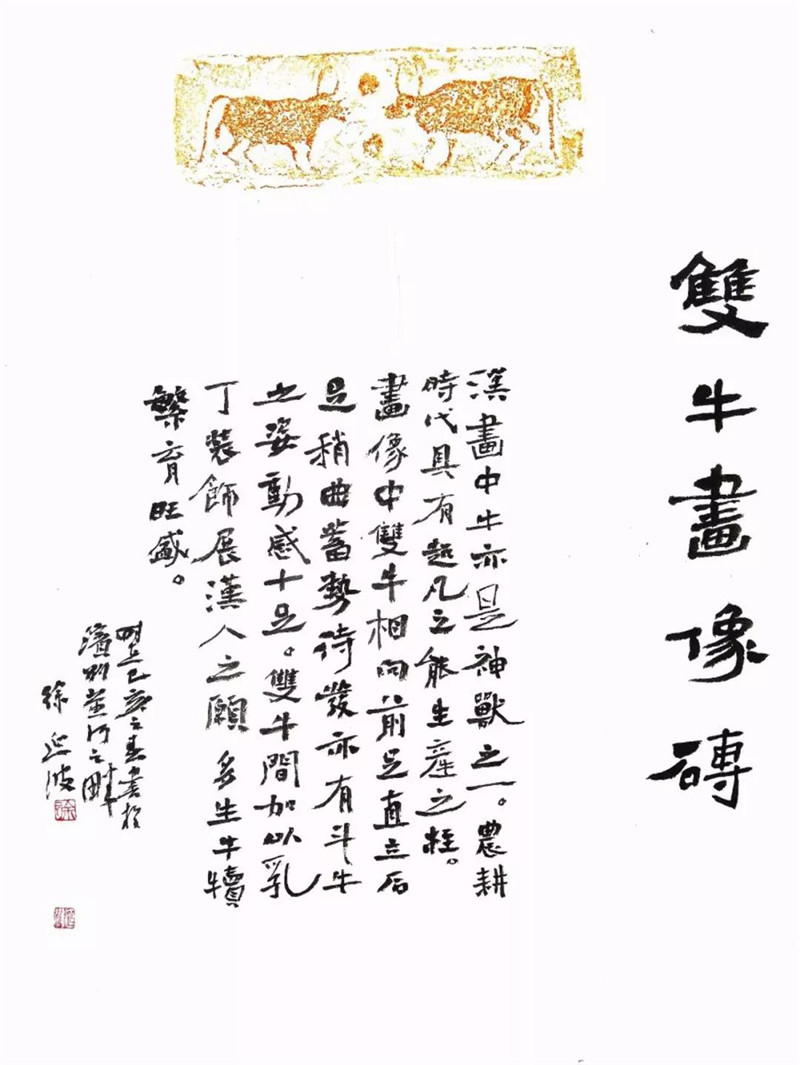 雙牛畫像磚
漢畫中牛亦是神獸之一。農耕
時代具有超凡之能生產之柱。
畫像中雙牛相向前足直立后
足稍曲蓄勢待發亦有斗牛
之姿動感十足。雙牛間加以乳
丁裝飾展漢人之願多生牛犢
繁育旺盛。
己亥之春書於
濱州黃河之畔
徐延波